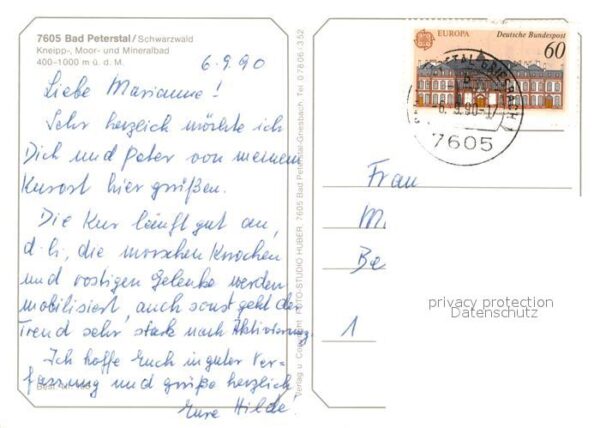 7605 Bad Peterstal/Schwarzwald
Kneipp-, Moor- und Mineralbad
400–1000 m ü. d. M.
6.9.90
Liebe Marianne!
Sehr herzlich möchte ich
Dich und Peter von meinem
Kurort hier grüßen.
Die Kur läuft gut an,
d.h. die morschen Knochen
und rostigen Gelenke werden
mobilisiert, auch sonst geht der
Trend sehr stark nach Aktivierung.
Ich hoffe Euch in guter Ver-
fassung und grüße herzlich
Eure Hilde!
Best.-Nr.
Verlag u. Copyright: FOTO-STUDIO HUBER, 7605 Bad Peterstal-Griesbach, Tel. 07806/352
EUROPA
Deutsche Bundespost
60
TAL-GRIESBACH
b
-6.9.90-17
7605
Frau
M
Be
1
privacy protection
Datenschutz